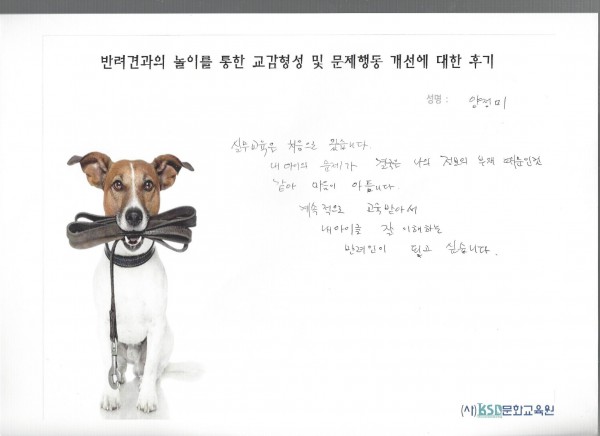 반려견과의 놀이를 통한 교감형성 및 문제행동 개선에 대한 후기
성명 : 양정미
실무교육은 처음으로 왔습니다.
내 아이의 문제가 결국은 나의 정보의 부재 때문인것
같아 마음이 아픕니다
계속적으로 교육받아서
내아이를 잘 이해하는
반려인이 되고 싶습니다.
(사)KSD문화교육원